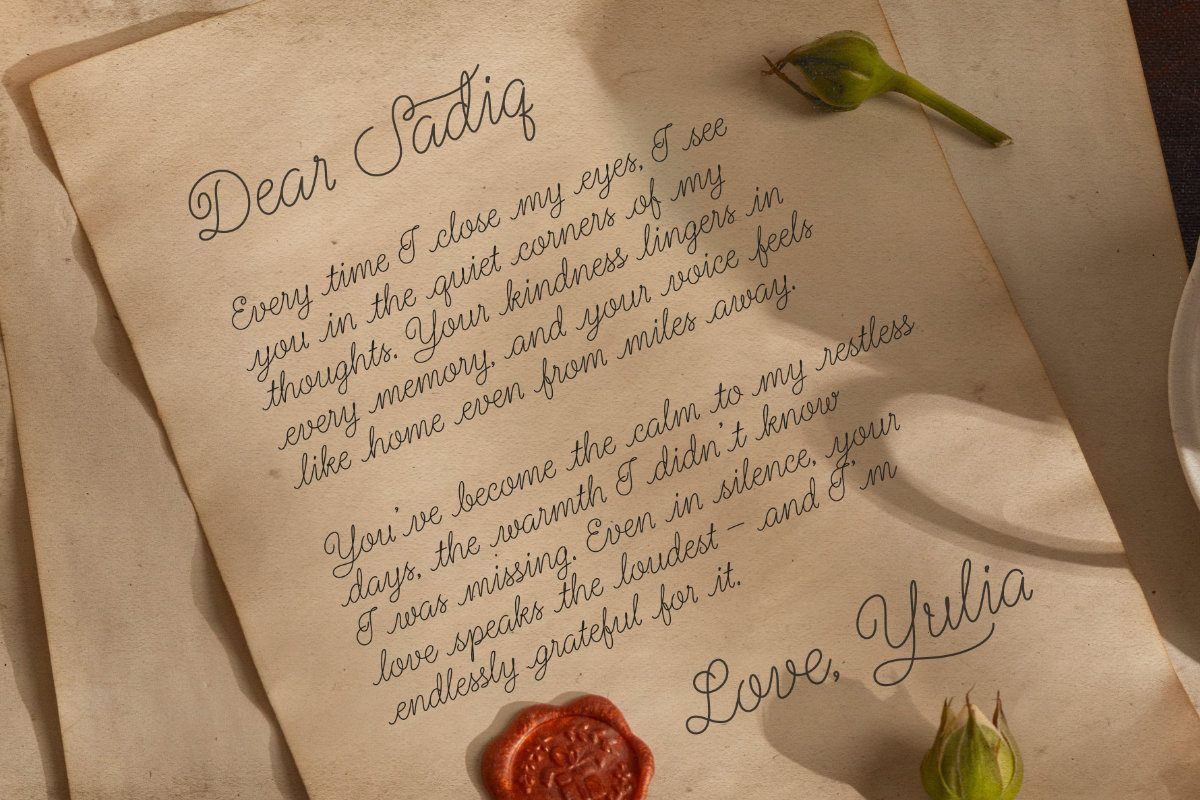 Dear Sadiq
Every time I close my eyes, I see
you in the quiet corners of my
thoughts. Your kindness lingers in
every memory, and your voice feels
like home even from miles away.
You've become the calm to my restless
days, the warmth I didn't know
I was missing. Even in silence, your
love speaks the loudest – and I'm
endlessly grateful for it.
Love, Yulia